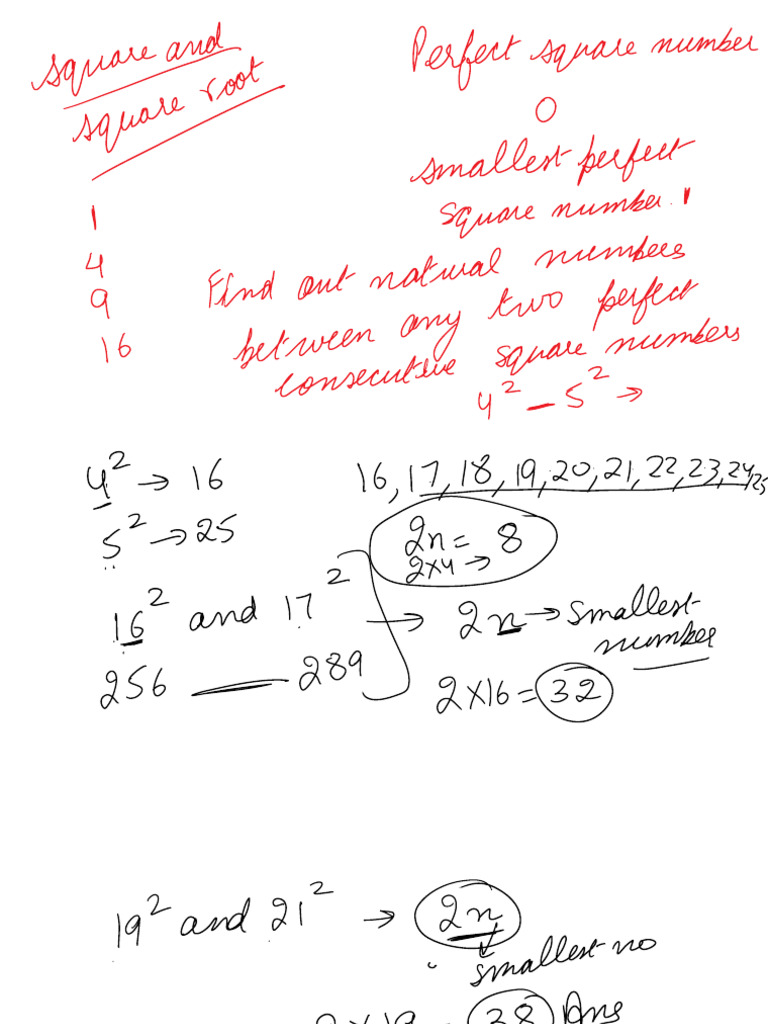 square and
square root
Perfect square number
0
smallest perfect
square number. 1
1
4
9
16
Find out natural numbers
between any two perfect
consecutive square numbers
4² - 5² →
4² → 16
5² → 25
16, 17, 18, 19, 20, 21, 22, 23, 24, 25
2n = 8
2×4 →
16² and 17² → 2n → smallest
number
256 — 289
2×16 = 32
19² and 21² → 2n
smallest no
2×19 = 38 Ans